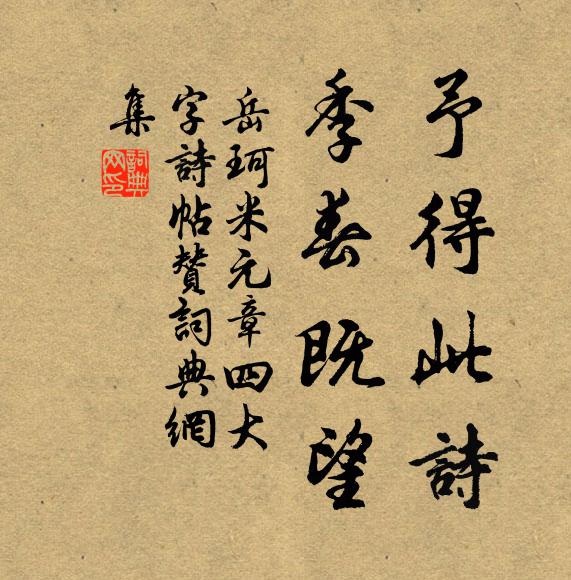 予得此詩
季春既望
岳珂米元章四大
字詩帖贊詞典網
集
詞典網印